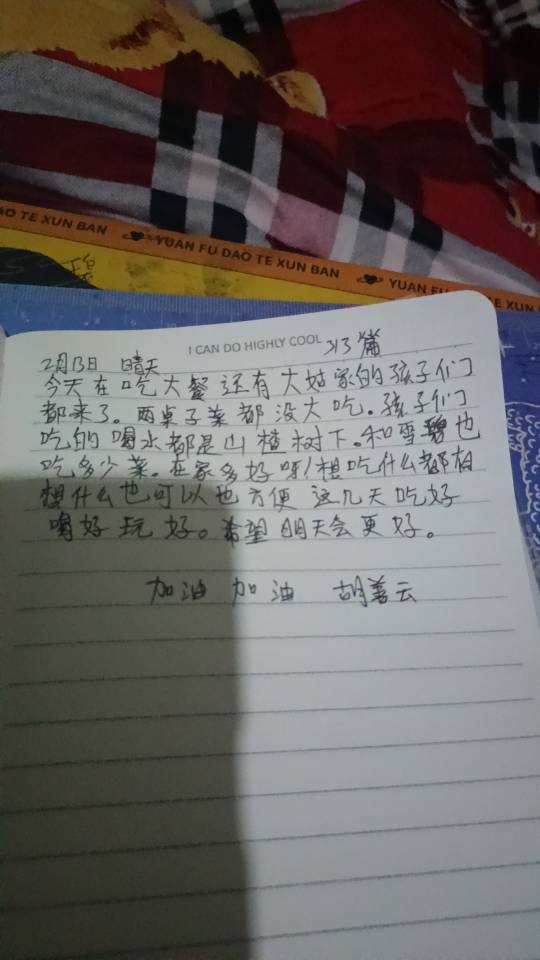 AO TE XUN BAN YUAN FU DAO TE XUN BAN YUAN FU DAO TE XUN BAN
I CAN DO HIGHLY COOL
2月13日 晴天 313篇
今天在吃大餐还有大姑家的孩子们
都来了。两桌子菜都没大吃。孩子们
吃的喝水都是山楂树下。和雪碧也
吃多少菜。在家多好呀!想吃什么都有
想什么也可以也方便 这几天吃好
喝好玩好。希望明天会更好。
加油 加油 胡善云